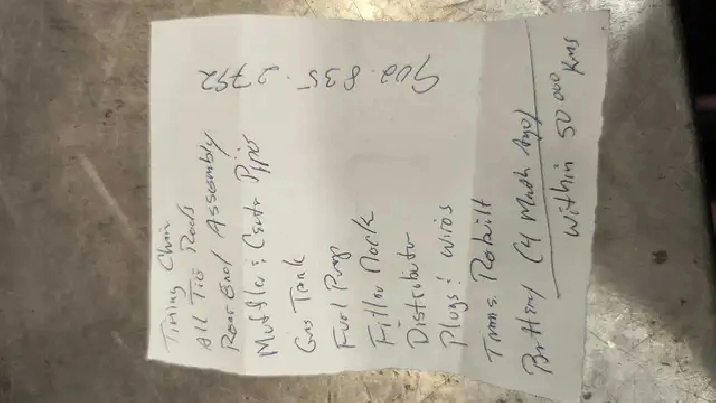 Timing Chain
All Tie Rods
Rear End Assembly
Muffler & Center Pipe
Gas Tank
Fuel Pump
Filler Neck
Distributor
Plugs & wires
Trans. Rebuilt
Battery (4 Months Ago)
within 50 000 Kms
902 835 - 2752